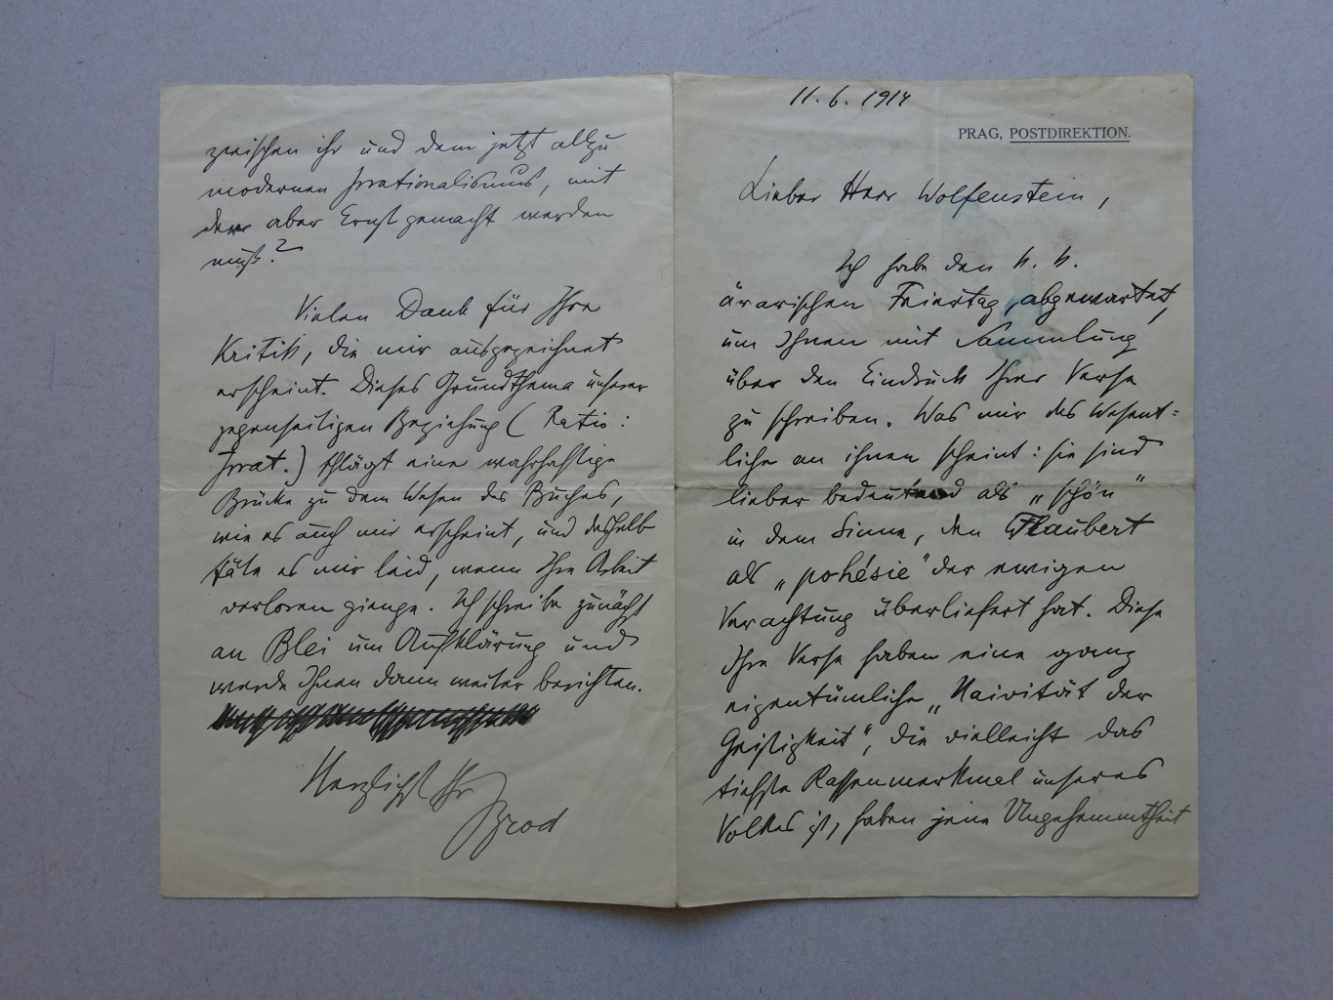 11. 6. 1914
PRAG, POSTDIREKTION.
Lieber Herr Wolfenstein,
Ich habe den k. k.
ärarischen Feiertag abgewartet,
um Ihnen mit Sammlung
über den Eindruck Ihrer Verse
zu schreiben. Was mir das Wesent=
liche an ihnen scheint: sie sind
lieber bedeutend als „schön"
in dem Sinne, den Flaubert
als „pohésie" der ewigen
Verachtung überliefert hat. Diese
Ihre Verse haben eine ganz
eigentümliche „Naivität der
Geistigkeit", die vielleicht das
tiefste Rassenmerkmal unseres
Volkes ist, haben jene Ungehemmtheit
zwischen ihr und dem jetzt allzu
modernen Irrationalismus, mit
dem aber Ernst gemacht werden
muß?
Vielen Dank für Ihre
Kritik, die mir ausgezeichnet
erscheint. Dieses Grundthema unserer
gegenseitigen Beziehung (Ratio:
Irrat.) schlägt eine wahrhaftige
Brücke zu dem Wesen des Buches,
wie es auch mir erscheint, und deshalb
täte es mir leid, wenn Ihre Arbeit
verloren gienge. Ich schreibe zunächst
an Blei um Aufklärung und
werde Ihnen dann weiter berichten.
Herzlichst Ihr
Brod